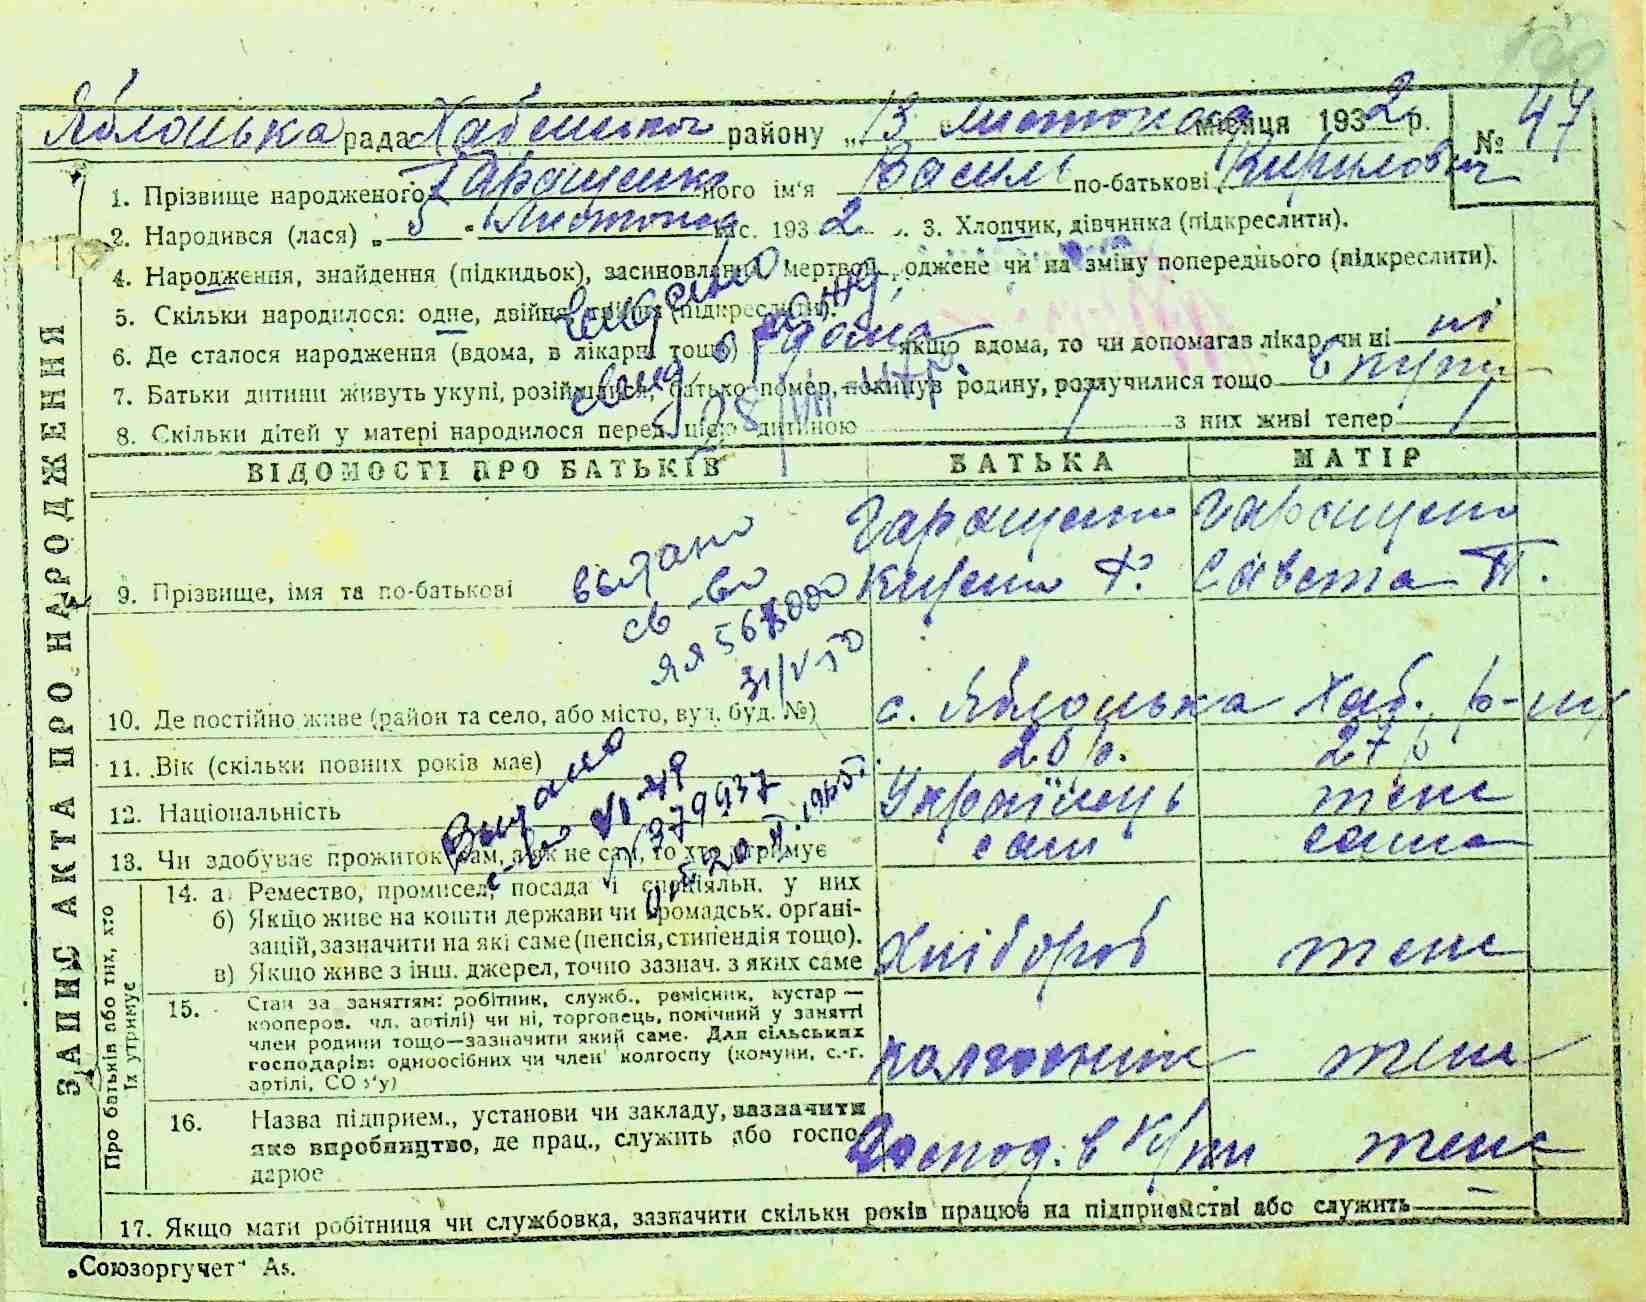 Яблонцька рада Хабенського району „13 Листопада місяця 1932 р. № 47
1. Прізвище народженого Гаращенко його ім'я Василь по-батькові Кирилович
2. Народився (лася) „5 „ Листопад міс. 1932 р. 3. Хлопчик, дівчинка (підкреслити).
4. Народження, знайдення (підкидьок), засиновлення, мертвонароджене чи на зміну попереднього (підкреслити).
5. Скільки народилося: одне, двійня, трійня (підкреслити).
6. Де сталося народження (вдома, в лікарні тощо) вдома якщо вдома, то чи допомагав лікар, чи ні ні
7. Батьки дитини живуть укупі, розійшлися, батько помер, покинув родину, розлучилися тощо вкупі
8. Скільки дітей у матері народилося перед цією дитиною з них живі тепер
ВІДОМОСТІ ПРО БАТЬКІВ БАТЬКА МАТІР
Гаращенко Гаращенко
9. Прізвище, імя та по-батькові
видано
св-во
ЯЯ 568000
31/V-50
10. Де постійно живе (район та село, або місто, вул. буд. №) с. Яблонцька Хаб. р-ну
11. Вік (скільки повних років має) 26 р. 27 р.
12. Національність Українець теж
13. Чи здобуває прожиток сам, а як не сам, то хто утримує сам сама
Видано
№ 379937
ЗАПИС АКТА ПРО НАРОДЖЕННЯ
Про батьків або тих, хто їх утримує
14. а) Ремество, промисел, посада і спеціяльн. у них
б) Якщо живе на кошти держави чи громадськ. орґані-
зацій, зазначити на які саме (пенсія, стипендія тощо).
в) Якщо живе з інш. джерел, точно зазнач. з яких саме Хлібороб теж
15. Стан за заняттям: робітник, служб., ремісник, кустар —
кооперов. чл. артілі) чи ні, торговець, помічний у занятті
член родини тощо—зазначити який саме. Для сільських
господарів: одноосібних чи член колгоспу (комуни, с.-г.
артілі, СОЗ'у) колгоспник теж
16. Назва підприєм., установи чи закладу, зазначити
яке виробництво, де прац., служить або госпо-
дарює Господ. в к/гпі теж
17. Якщо мати робітниця чи службовка, зазначити скільки років працює на підприємстві або служить
„Союзоргучет“ As.